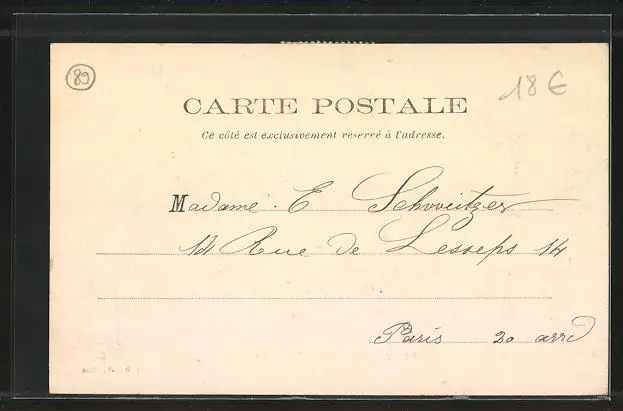 89
18 €
CARTE POSTALE
Ce côté est exclusivement réservé à l'adresse.
Madame. E Schweitzer
14 Rue de Lesseps 14
Paris 20 arrd